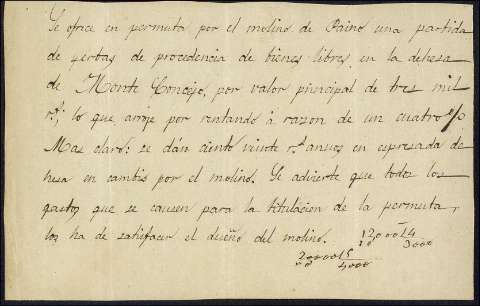 Se ofrece en permuta por el molino de Paino una partida
de yerbas de procedencia de bienes libres, en la dehesa
de Monte Concejo, por valor principal de tres mil
r.s, lo que arroje por rentando á razon de un cuatro p%
Mas claro: se dán ciento veinte r.s anues en espresada de
hesa en cambio por el molino. Se advierte que todos los
gastos que se causen para la titulacion de la permuta,
los ha de satisfacer el dueño del molino.
12000 | 4
00 3000
20000 | 5
00 4000